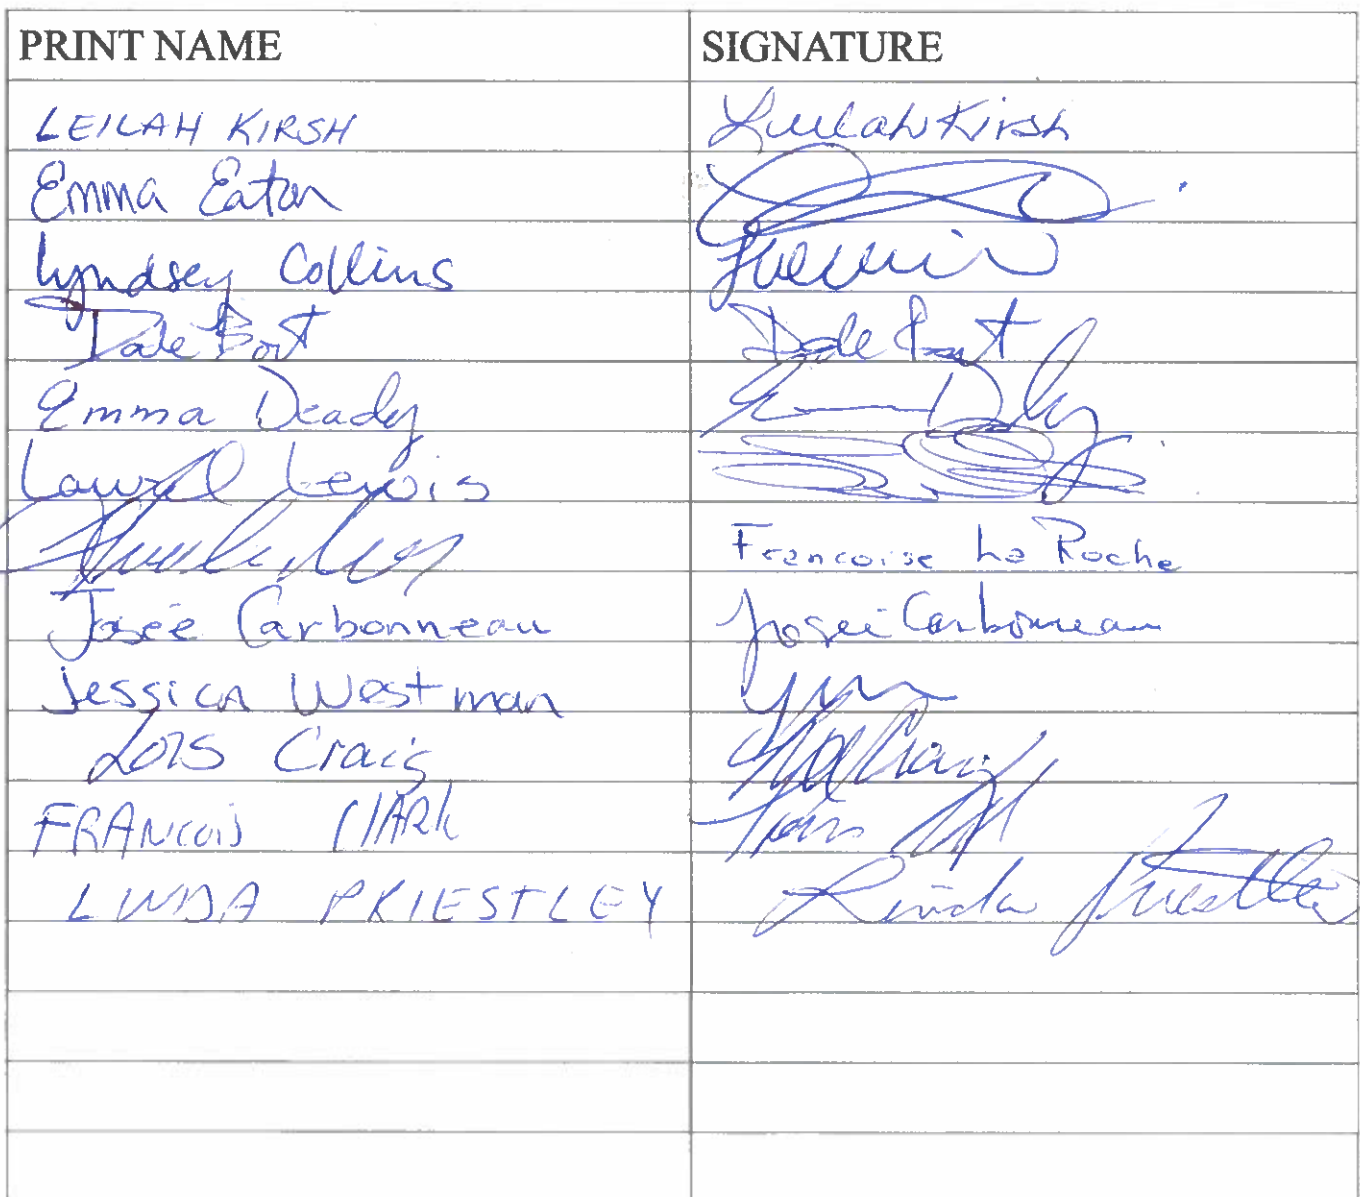 PRINT NAME SIGNATURE
LEILAH KIRSH Leilah Kirsh
Emma Eaton
Lyndsey Collins
Dale Bort Dale Bort
Emma Deady
Laurel Lewis
Francoise La Roche
Josée Carbonneau Josée Carbonneau
Jessica Westman
Lois Craig Craig
FRANCOIS CLARK
LINDA PRIESTLEY Linda Priestley